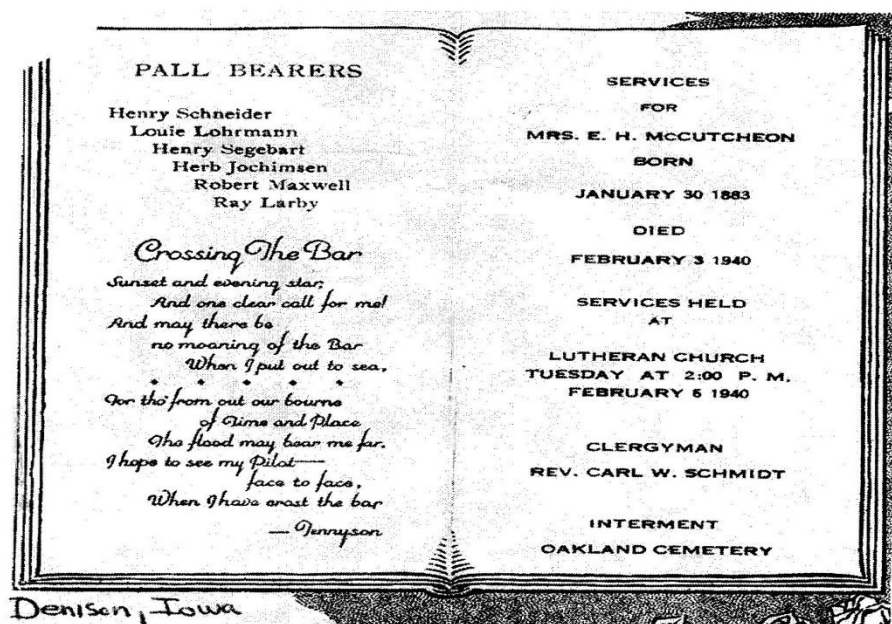 PALL BEARERS
Henry Schneider
Louie Lohrmann
Henry Segebart
Herb Jochimsen
Robert Maxwell
Ray Larby
Crossing The Bar
Sunset and evening star;
And one clear call for me!
And may there be
no moaning of the Bar
When I put out to sea,
For tho' from out our bourne
of Time and Place
The flood may bear me far,
I hope to see my Pilot—
face to face,
When I have crost the bar
— Tennyson
SERVICES
FOR
MRS. E. H. MCCUTCHEON
BORN
JANUARY 30 1883
DIED
FEBRUARY 3 1940
SERVICES HELD
AT
LUTHERAN CHURCH
TUESDAY AT 2:00 P. M.
FEBRUARY 6 1940
CLERGYMAN
REV. CARL W. SCHMIDT
INTERMENT
OAKLAND CEMETERY
Denison, Iowa